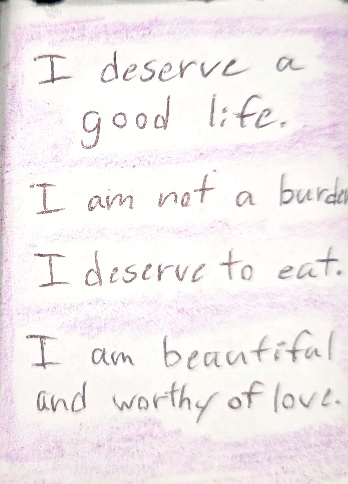 I deserve a
good life.
I am not a burden
I deserve to eat.
I am beautiful
and worthy of love.